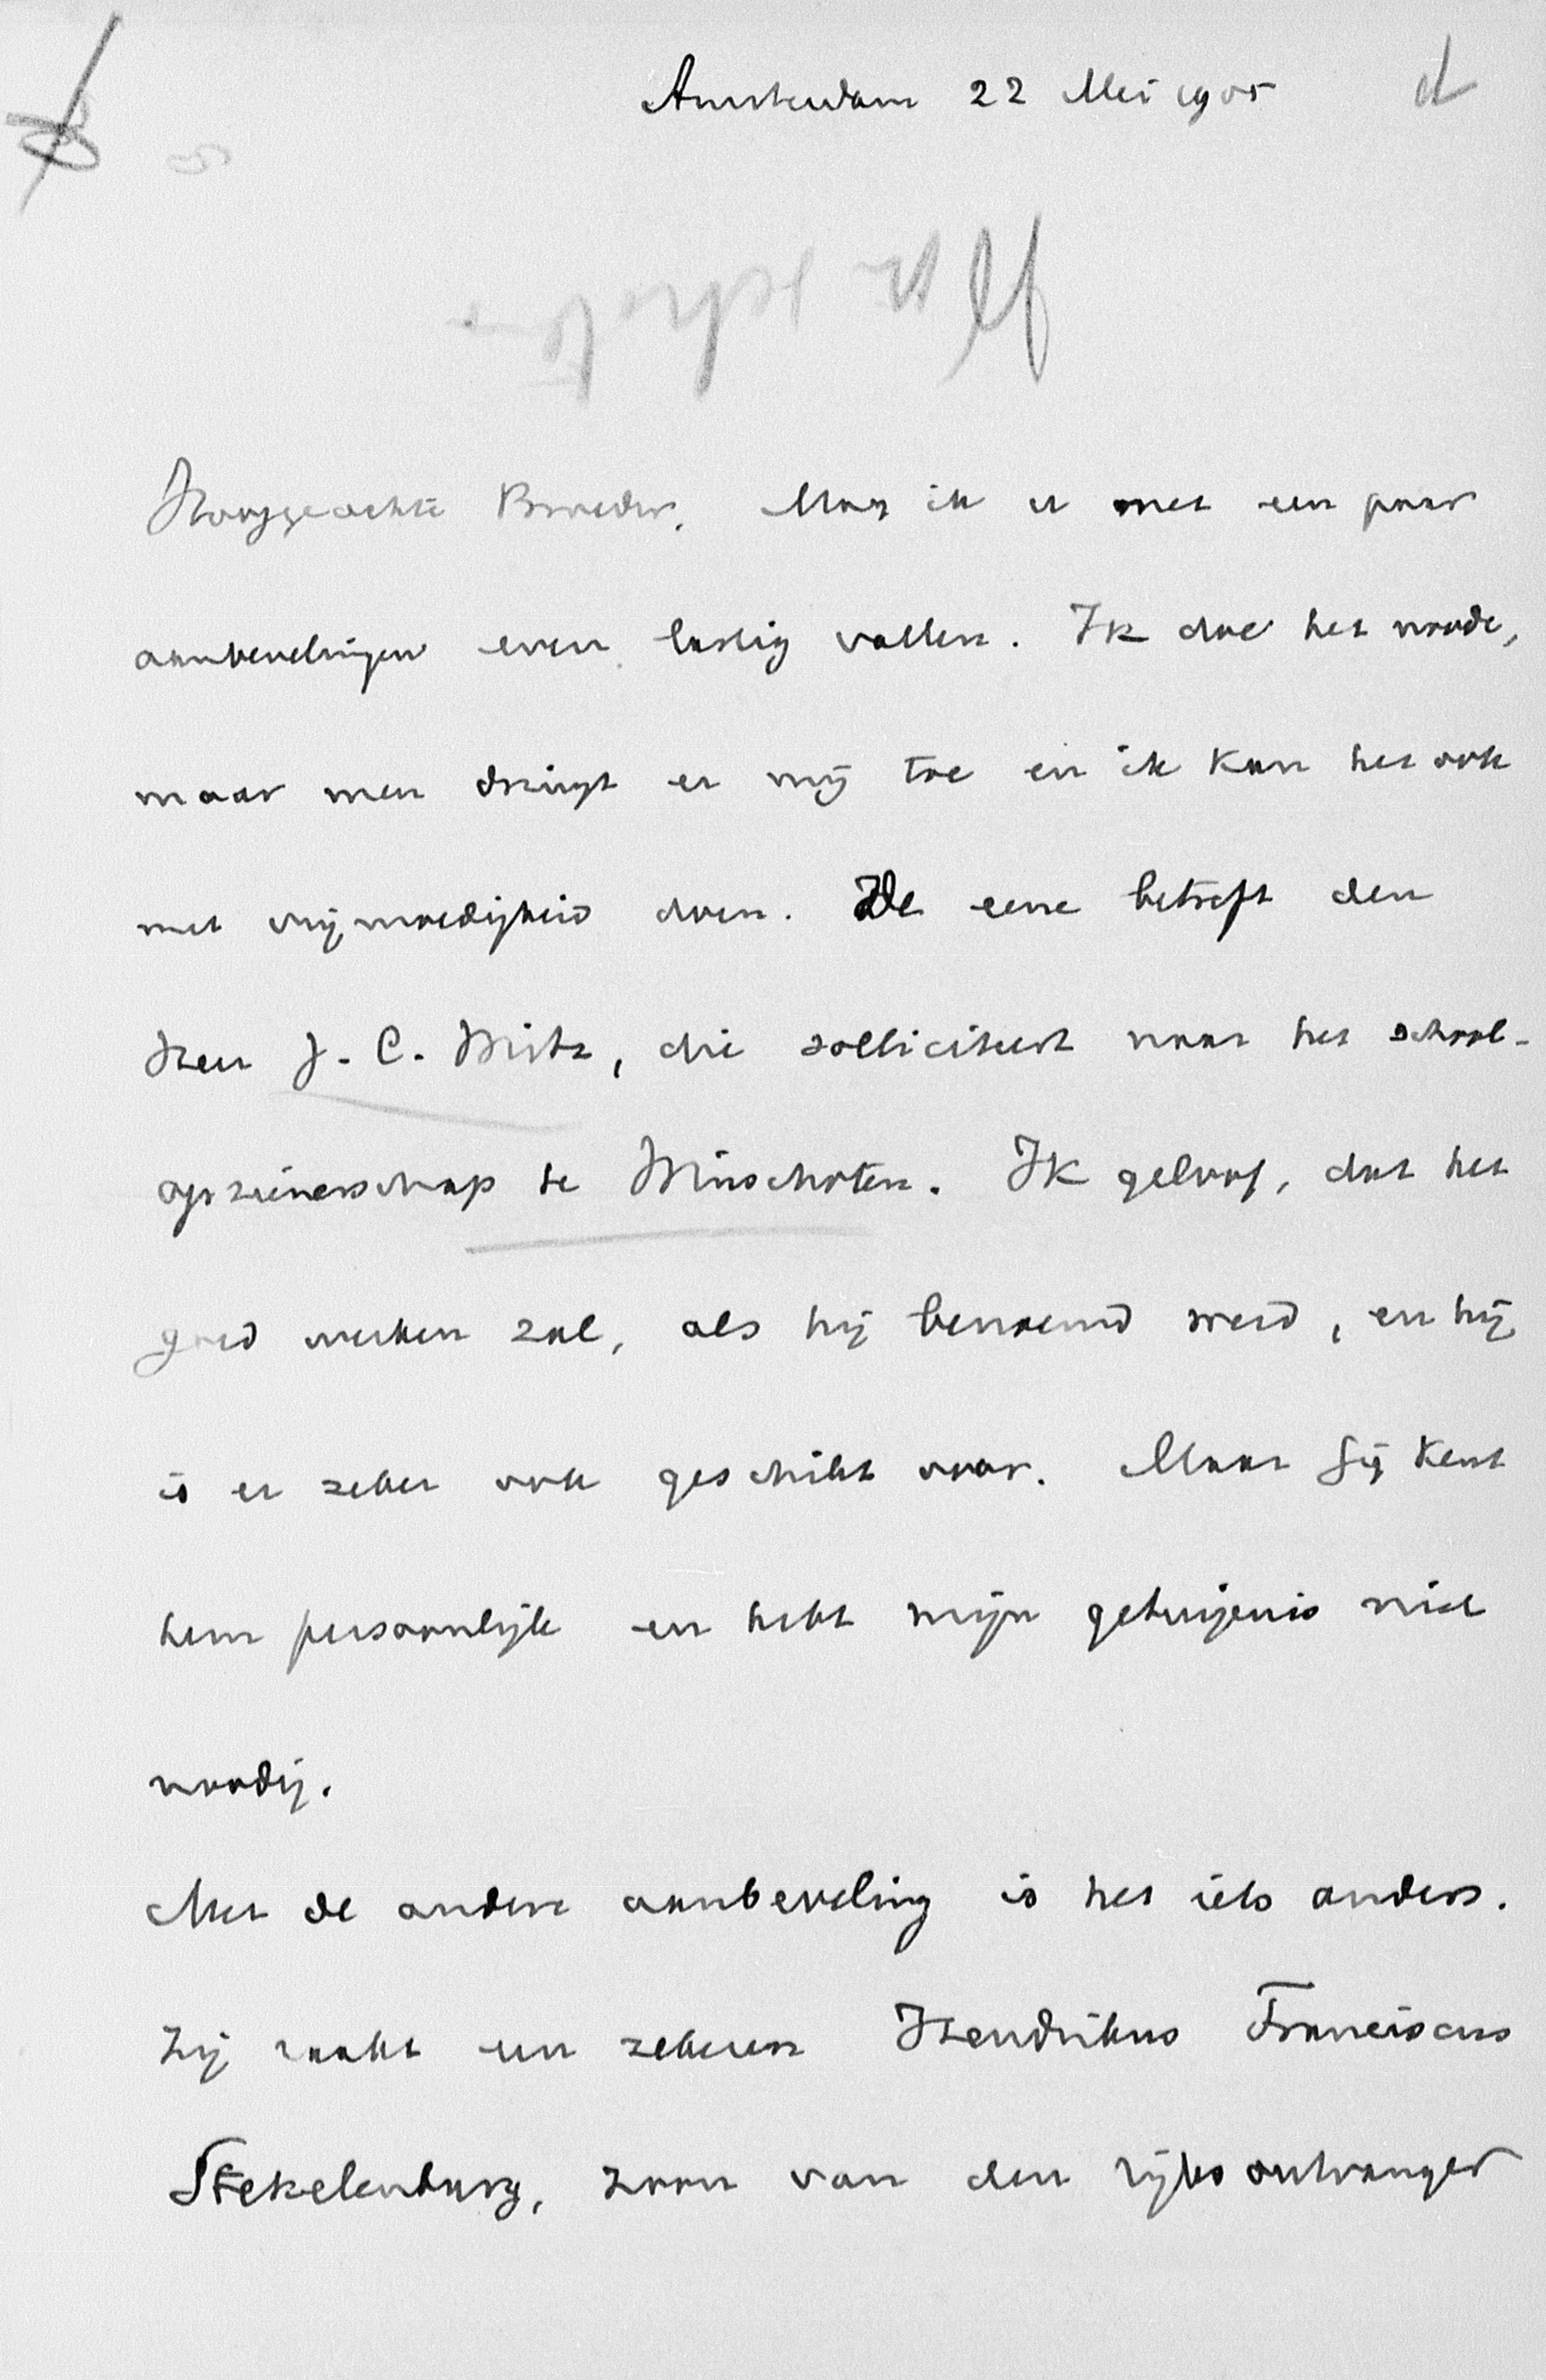 Amsterdam 22 Mei 1905
Hooggeachte Broeder, Mag ik u met een paar
aanbevelingen even lastig vallen. Ik doe het noode,
maar men dringt er mij toe en ik kan het ook
met vrijmoedigheid doen. De eene betreft den
Heer J. C. Wirtz, die solliciteert naar het school-
opzienerschap te Winschoten. Ik geloof, dat het
goed werken zal, als hij benoemd werd, en hij
is er zeker ook geschikt voor. Maar Gij kent
hem persoonlijk en hebt mijn getuigenis niet
noodig.
Met de andere aanbeveling is het iets anders.
Zij raakt een zekeren Hendrikus Franciscus
Stekelenburg, zoon van den rijksontvanger